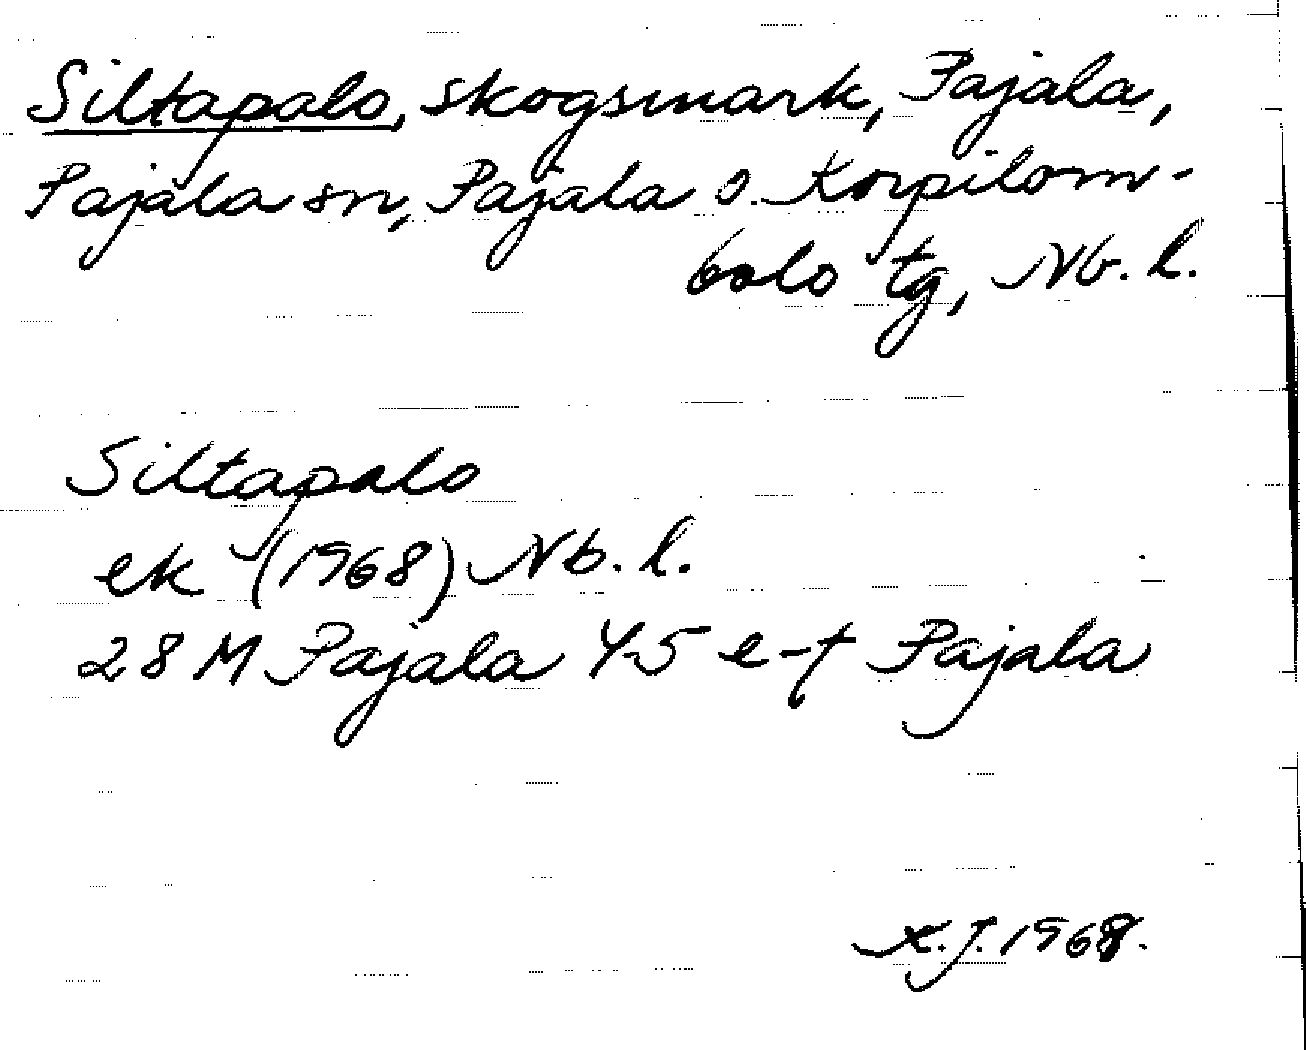 Siltapalo, skogsmark, Pajala,
Pajala sn, Pajala o. Korpilom-
bolo tg, Nb. l.
Siltapalo
ek (1968) Nb. l.
28 M Pajala Y-5 e-f Pajala
K.J. 1968.